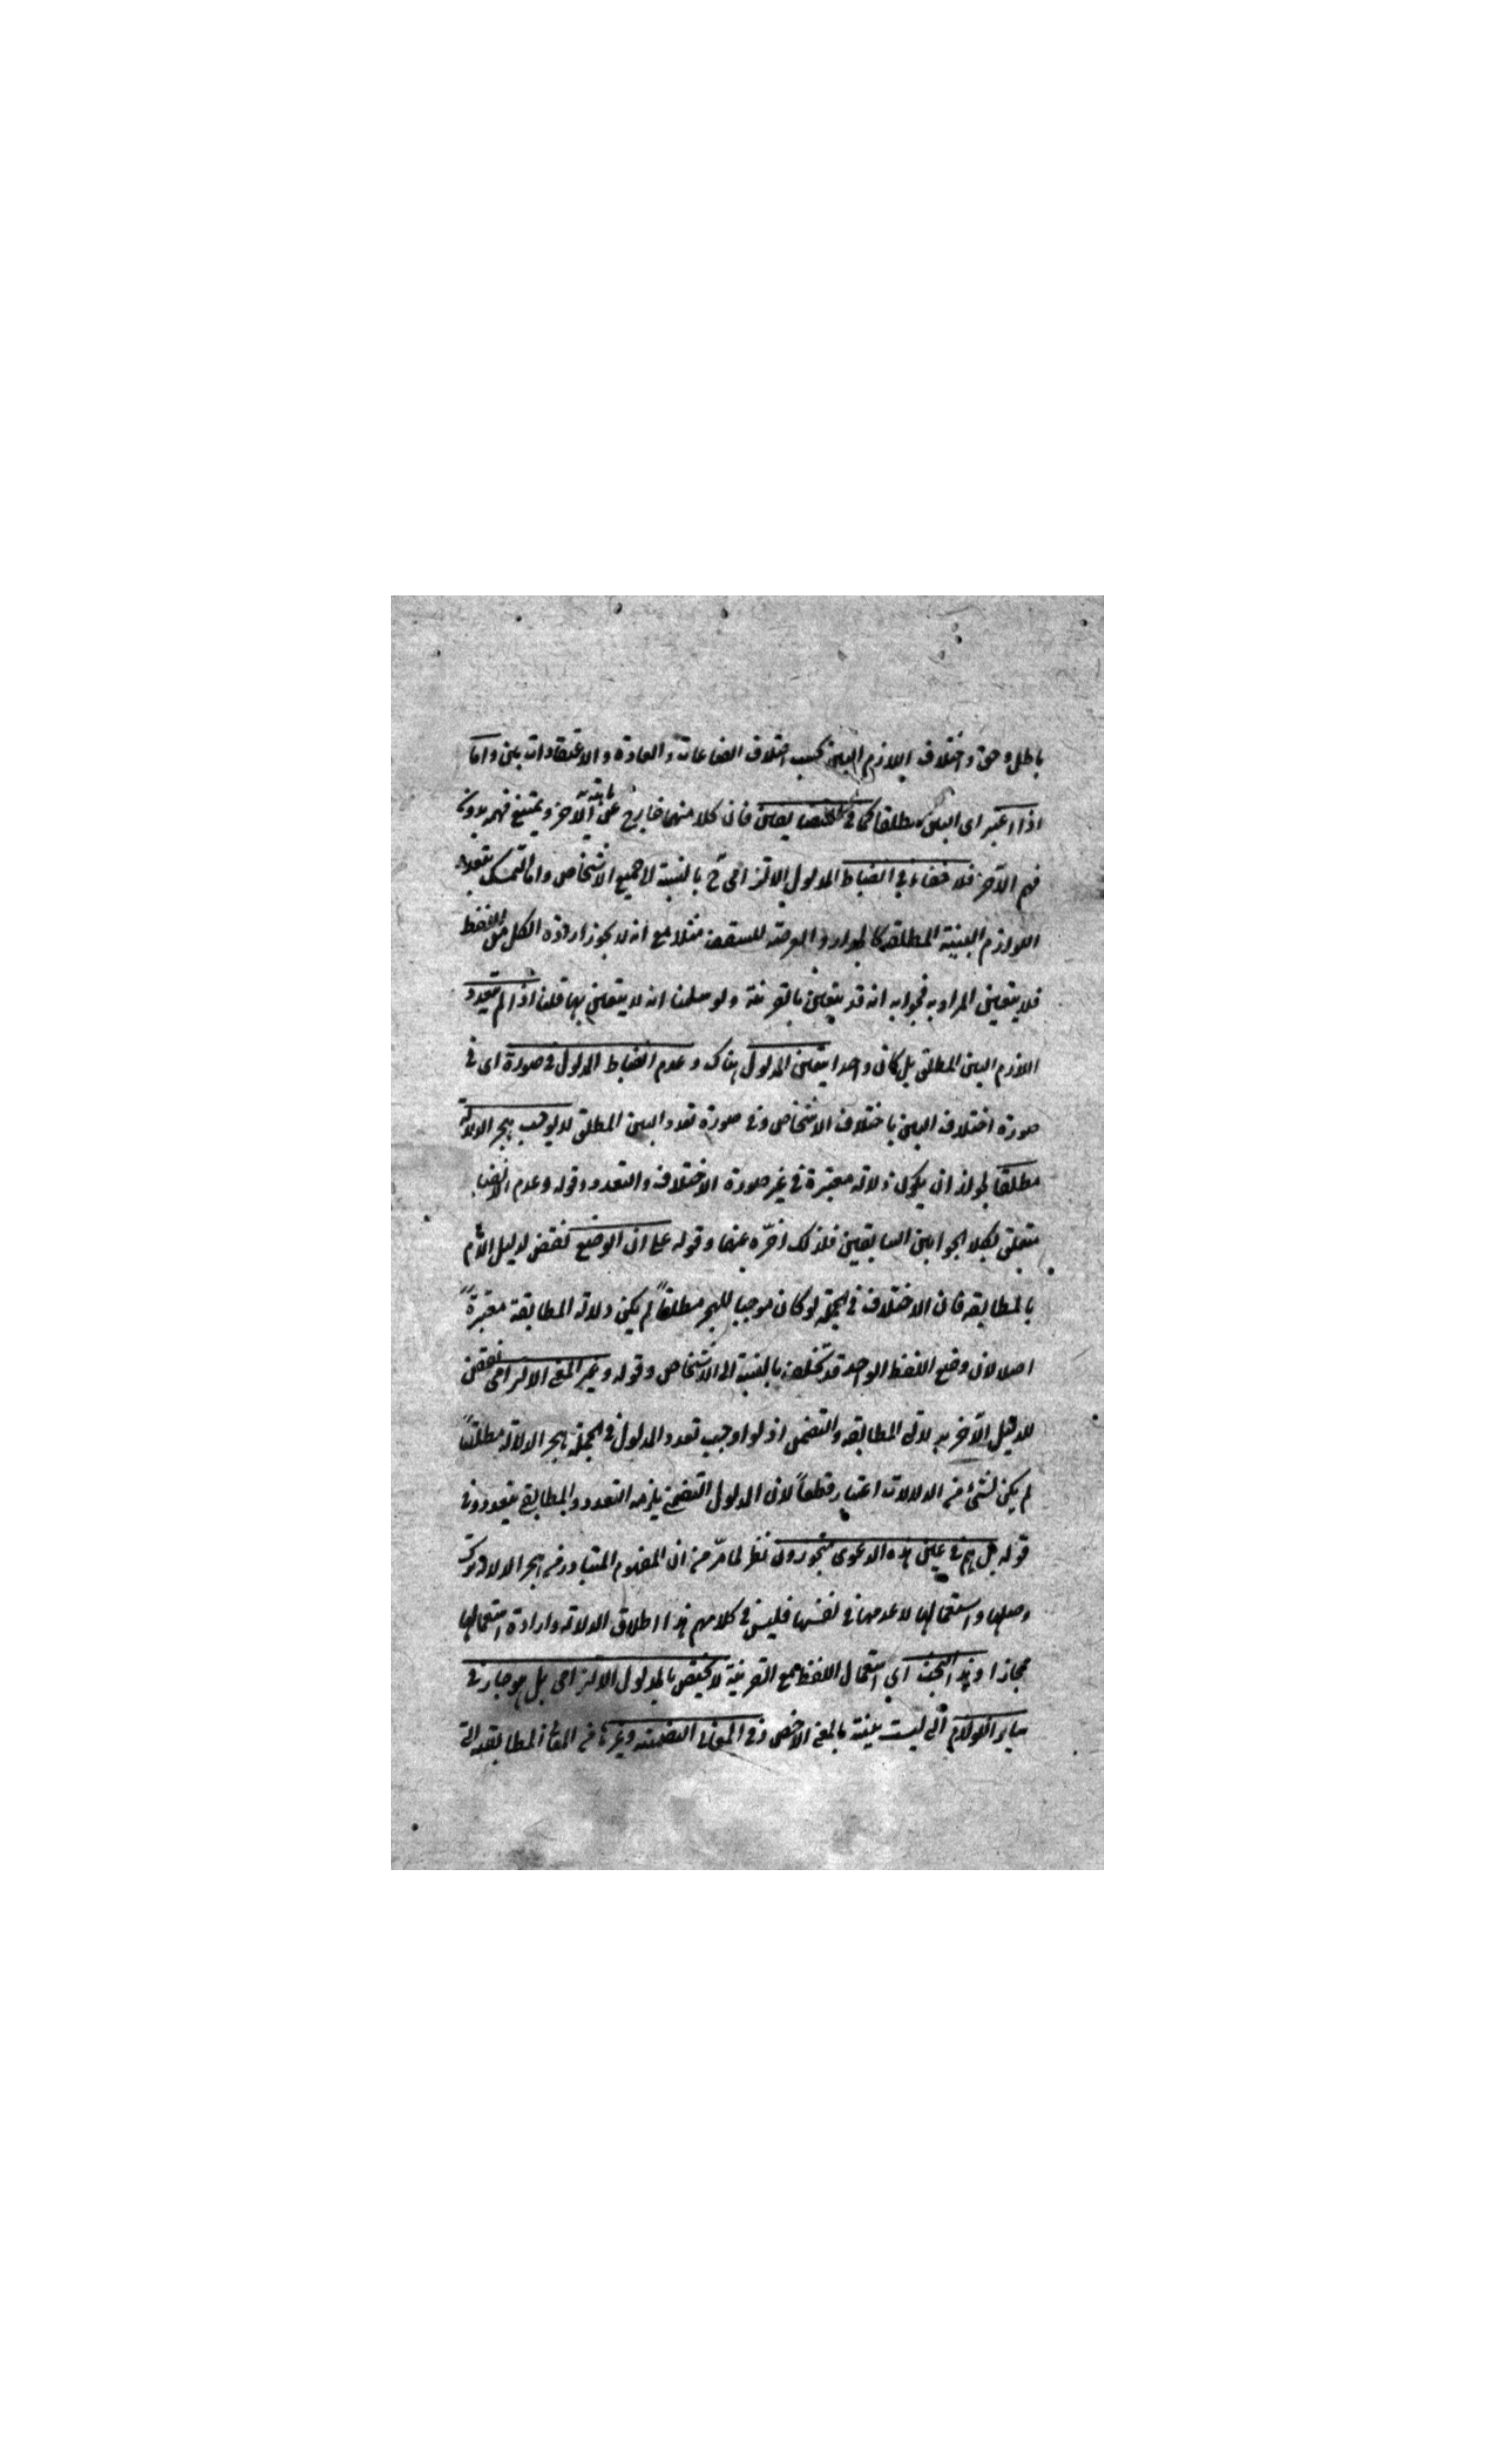 باطل وحق واختلاف اللازم البين بحسب اختلاف الصناعات والعادة والاعتقادات بين واما
اذا اعتبر اى البين مطلقا كما فى المتضايفين فان كلا منهما خارج عن ماهية الآخر ويمتنع فهمه بدون
فهم الآخر فلا خفاء فى انضباط المدلول الالتزامى ح بالنسبة الى جميع الاشخاص واما التمسك بتعدد
اللوازم البينية المطلقة كالجدار والعرصة للسقف مثلا مع انه لا يجوز ارادة الكل من اللفظ
فلا يتعين المراد به فجوابه انه قد يتعين بالقرينة ولو سلمنا انه لا يتعين بها قلنا اذا لم يتعدد
اللازم البين المطلق بل كان واحدا يتعين المدلول هناك وعدم انضباط المدلول فى صورة اى فى
صورة اختلاف البين باختلاف الاشخاص وفى صورة تعدد البين المطلق لا يوجب هجر الدلالة
مطلقا لجواز ان يكون دلالة معتبرة فى غير صورة الاختلاف والتعدد وقوله وعدم الانضبا
متعلق بكلا الجوابين السابقين فلذلك اخّره عنهما وقوله على ان الوضع نقض لدليل الامام
بالمطابقة فان الاختلاف فى الجملة لو كان موجبا للهجر مطلقاً لم يكن دلالة المطابقة معتبرةً
اصلا لان وضع اللفظ الواحد قد يختلف بالنسبة الى الاشخاص وقوله وغير المعنى الالتزامى نقض
للدليل الآخر بدلالتى المطابقة والتضمن اذ لو اوجب تعدد المدلول فى الجملة هجر الدلالة مطلقاً
لم يكن لشئ من الدلالات اعتبار قطعاً لان المدلول التضمنى يلزمه التعدد والمطابقى يتعدد وفى
قوله بل هم فى عين هذه الدعوى متجوزون نظر لما مرّ من ان المفهوم المتبادر من هجر الدلالة ترك
وصلها واستعمالها لا عدمها فى نفسها فليس فى كلامهم هذا اطلاق الدلالة وارادة استعمالها
مجازا وهذا البحث اى استعمال اللفظ مع القرينة لا يختص بالمدلول الالتزامى بل هو جار فى
ساير اللوازم التى ليست بينة بالمعنى الاخص وفى المعانى التضمنية وغيرها من المعانى المطابقة التى